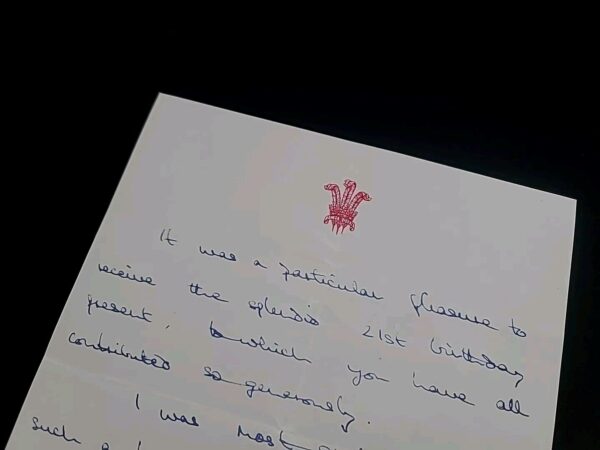 It was a particular pleasure to
receive the splendid 21st birthday
present, to which you have all
contributed so generously.
I was most
such a